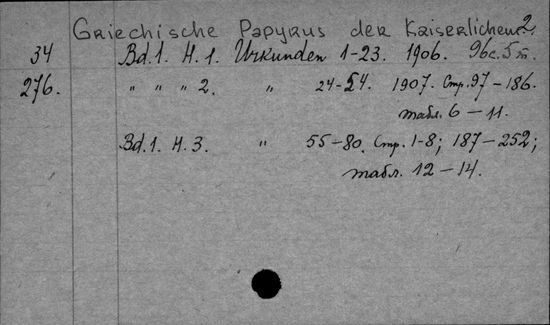 Griechische Papyrus der Kaiserlichen 2.
34 Bd. 1. H. 1. Urkunden 1-23. 1906. 96 с. 5 т.
276. " " " 2. " 24-54. 1907. Стр. 97-186.
табл. 6-11.
Bd. 1. H. 3. " 55-80. Стр. 1-8; 187-252;
табл. 12-14.